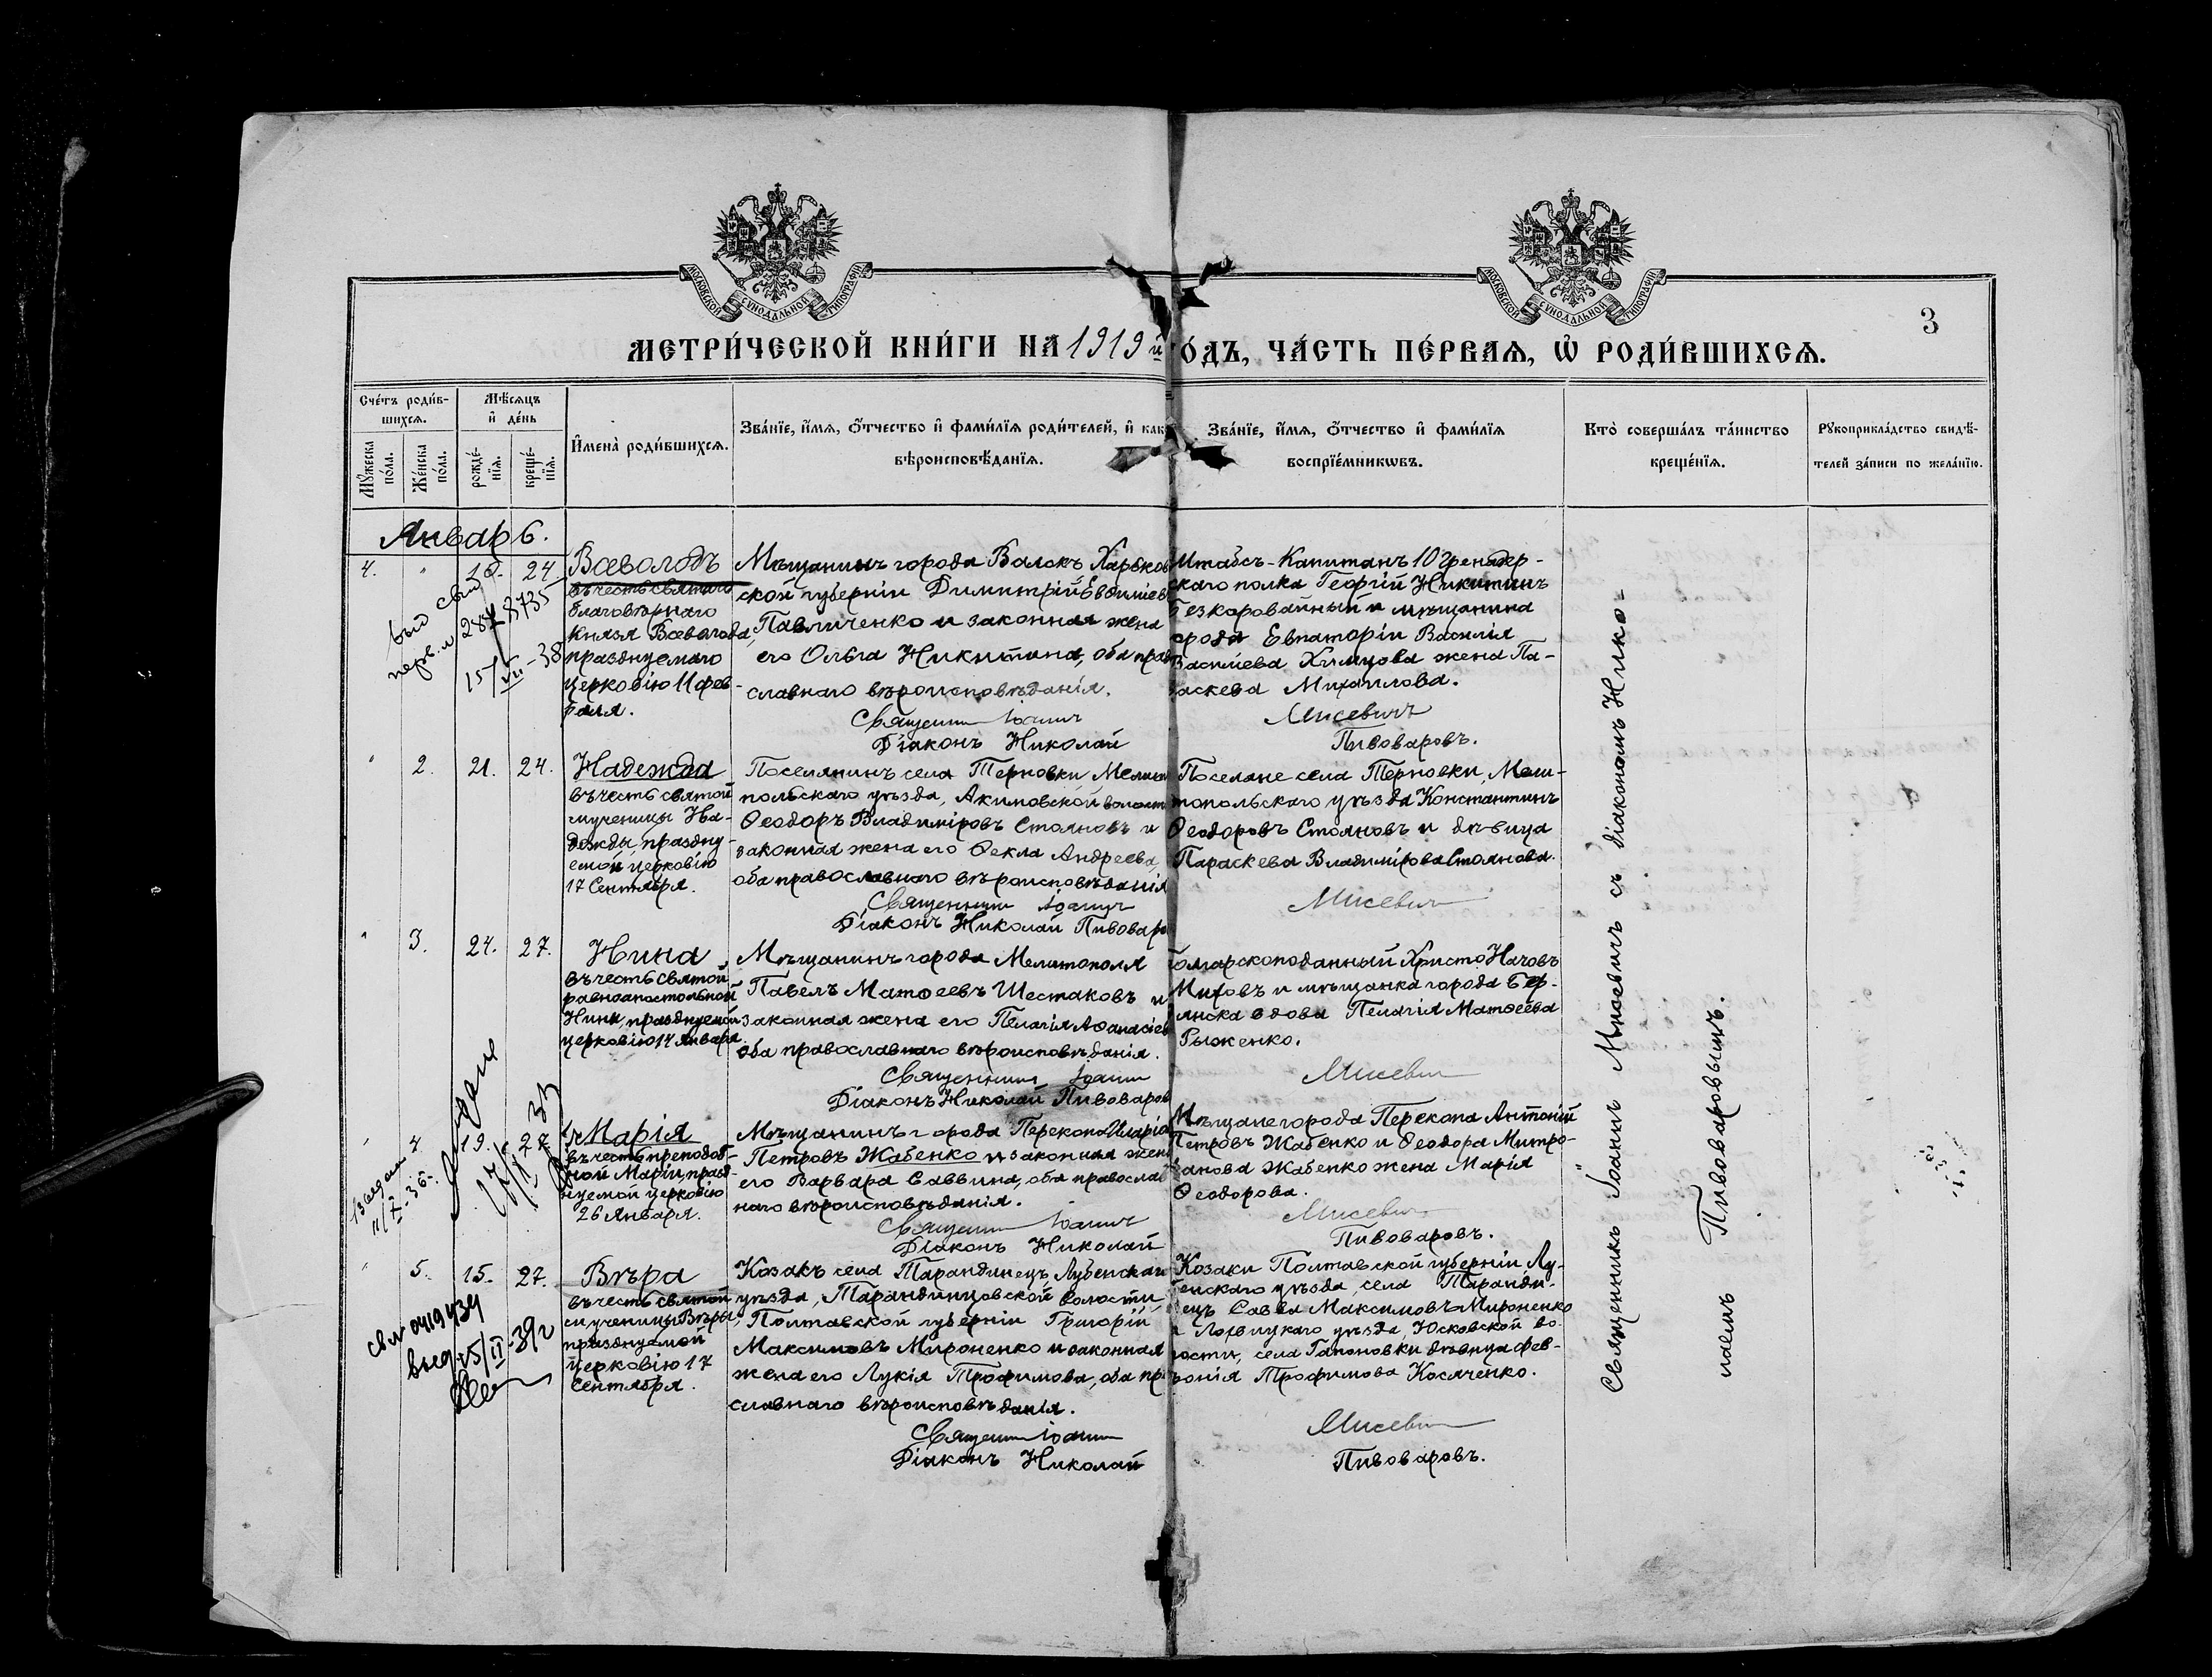 МОСКОВСКОЙ СѴНОДАЛЬНОЙ ТИПОГРАФІИ
МОСКОВСКОЙ СѴНОДАЛЬНОЙ ТИПОГРАФІИ
3
МЕТРИ́ЧЕСКОЙ КНИ́ГИ НА 1919 й
О́ДЪ, ЧА́СТЬ ПЕ́РВАѦ, Ѡ҆ РОДИ́ВШИХСѦ.
Сче́тъ роди́в-
шихсѧ.
Мѣ́сѧцъ
и҆ де́нь
Мꙋ́жеска
по́ла.
Же́нска
по́ла.
рожде́-
нїѧ.
креще́-
нїѧ.
И҆мена̀ роди́вшихсѧ.
Зва́нїе, и҆́мѧ, ѻ҆́тчество и҆ фами́лїѧ роди́телей, и҆ как
вѣроисповѣ́данїѧ.
Зва́нїе, и҆́мѧ, ѻ҆́тчество и҆ фами́лїѧ
воспрїе́мникѡвъ.
Кто̀ соверша́лъ та́инство
креще́нїѧ.
Рꙋкоприкла́дство свидѣ́-
телей за́писи по жела́нїю.
Январь.
4. " 24.
Всеволодъ
въ честь святого
благовѣрнаго
Князя Всеволода,
празднуемаго
Церковію 11 фев-
раля.
15/VII-38
Мѣщанинъ города Валокъ Харьков
ской губерніи Димитрій Евдиміев
Павличенко и законная жена
его Ольга Никитина, оба прав
славнаго вѣроисповѣданія.
Священникъ Іоаннъ
Діаконъ Николай
Штабсъ-Капитанъ 10 Гренадер-
скаго полка Георгій Никитинъ
Безкоровайный и мѣщанина
города Евпаторіи Василія
Василіева Химцова жена Па-
раскева Михаилова.
Мисевичъ
Пивоваровъ.
" 2. 21. 24.
Надежда
въ честь святой
мученицы На-
дежды праздну-
емой церковію
17 Сентября.
Поселянинъ села Терновки Мелит
польскаго уѣзда, Акимовской волост
Ѳеодоръ Владиміровъ Стояновъ и
законная жена его Ѳекла Андреева,
оба православнаго вѣроисповѣданія
Священникъ Іоаннъ
Діаконъ Николай Пивовар
Поселяне села Терновки, Мели-
топольскаго уѣзда Константинъ
Ѳеодоровъ Стояновъ и дѣвица
Параскева Владимірова Стоянова.
Мисевичъ
" 3. 24. 27.
Нина,
въ честь святой
равноапостольной
Нины, празднуемой
церковію 14 Января.
Мѣщанинъ города Мелитополя
Павелъ Матѳеевъ Шестаковъ и
законная жена его Пелагія Аѳанасіев
оба православнаго вѣроисповѣданія.
Священникъ Іоаннъ
Діаконъ Николай Пивоваров
болгарскоподанный Христо Начовъ
Миховъ и мѣщанка города Бер-
дянска вдова Пелагія Матѳеева
Рыженко.
Мисевичъ
" 4. 19. 27.
Марія
въ честь преподоб-
ной Маріи, празд-
нуемой церковію
26 Января.
11/X-36.
Мѣщанинъ города Перекопа Иларіо
Петровъ Жабенко и законная жена
его Варвара Саввина, оба православ
наго вѣроисповѣданія.
Священникъ Іоаннъ
Діаконъ Николай
Мѣщане города Перекопа Антоній
Петровъ Жабенко и Ѳеодора Митро-
фанова Жабенко жена Марія
Ѳеодорова.
Мисевичъ
Пивоваровъ.
" 5. 15. 27.
Вѣра
въ честь святой
мученицы Вѣры,
празднуемой
церковію 17
Сентября.
св № 0419434
выд. 25/II-39г
Козакъ села Тарандинецъ, Лубенскаг
уѣзда, Тарандинцовской волости,
Полтавской губерніи Григорій
Максимовъ Мироненко и законная
жена его Лукія Трофимова, оба пр
славнаго вѣроисповѣданія.
Священникъ Іоаннъ
Діаконъ Николай
Козаки Полтавской губерніи Лу-
бенскаго уѣзда, села Таранди-
нецъ Савва Максимовъ Мироненко
и Лохвицкаго уѣзда, Юсковской во-
лости, села Гапоновки дѣвица Фев-
ронія Трофимова Косяченко.
Мисевичъ
Пивоваровъ.
Священникъ Іоаннъ Мисевичъ съ діакономъ Нико-
лаемъ Пивоваровымъ.